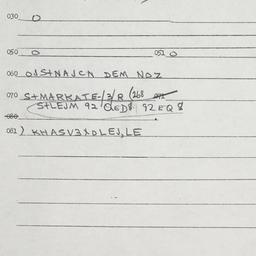 030 O
050 O 051 O
060 OJS+NAJCN DEM NOZ
070 S+MARKATE-/3/R (268
S+LEJM 92 QED8 92 EQ 8
080
081 ) KHASV3XDLEJ,LE